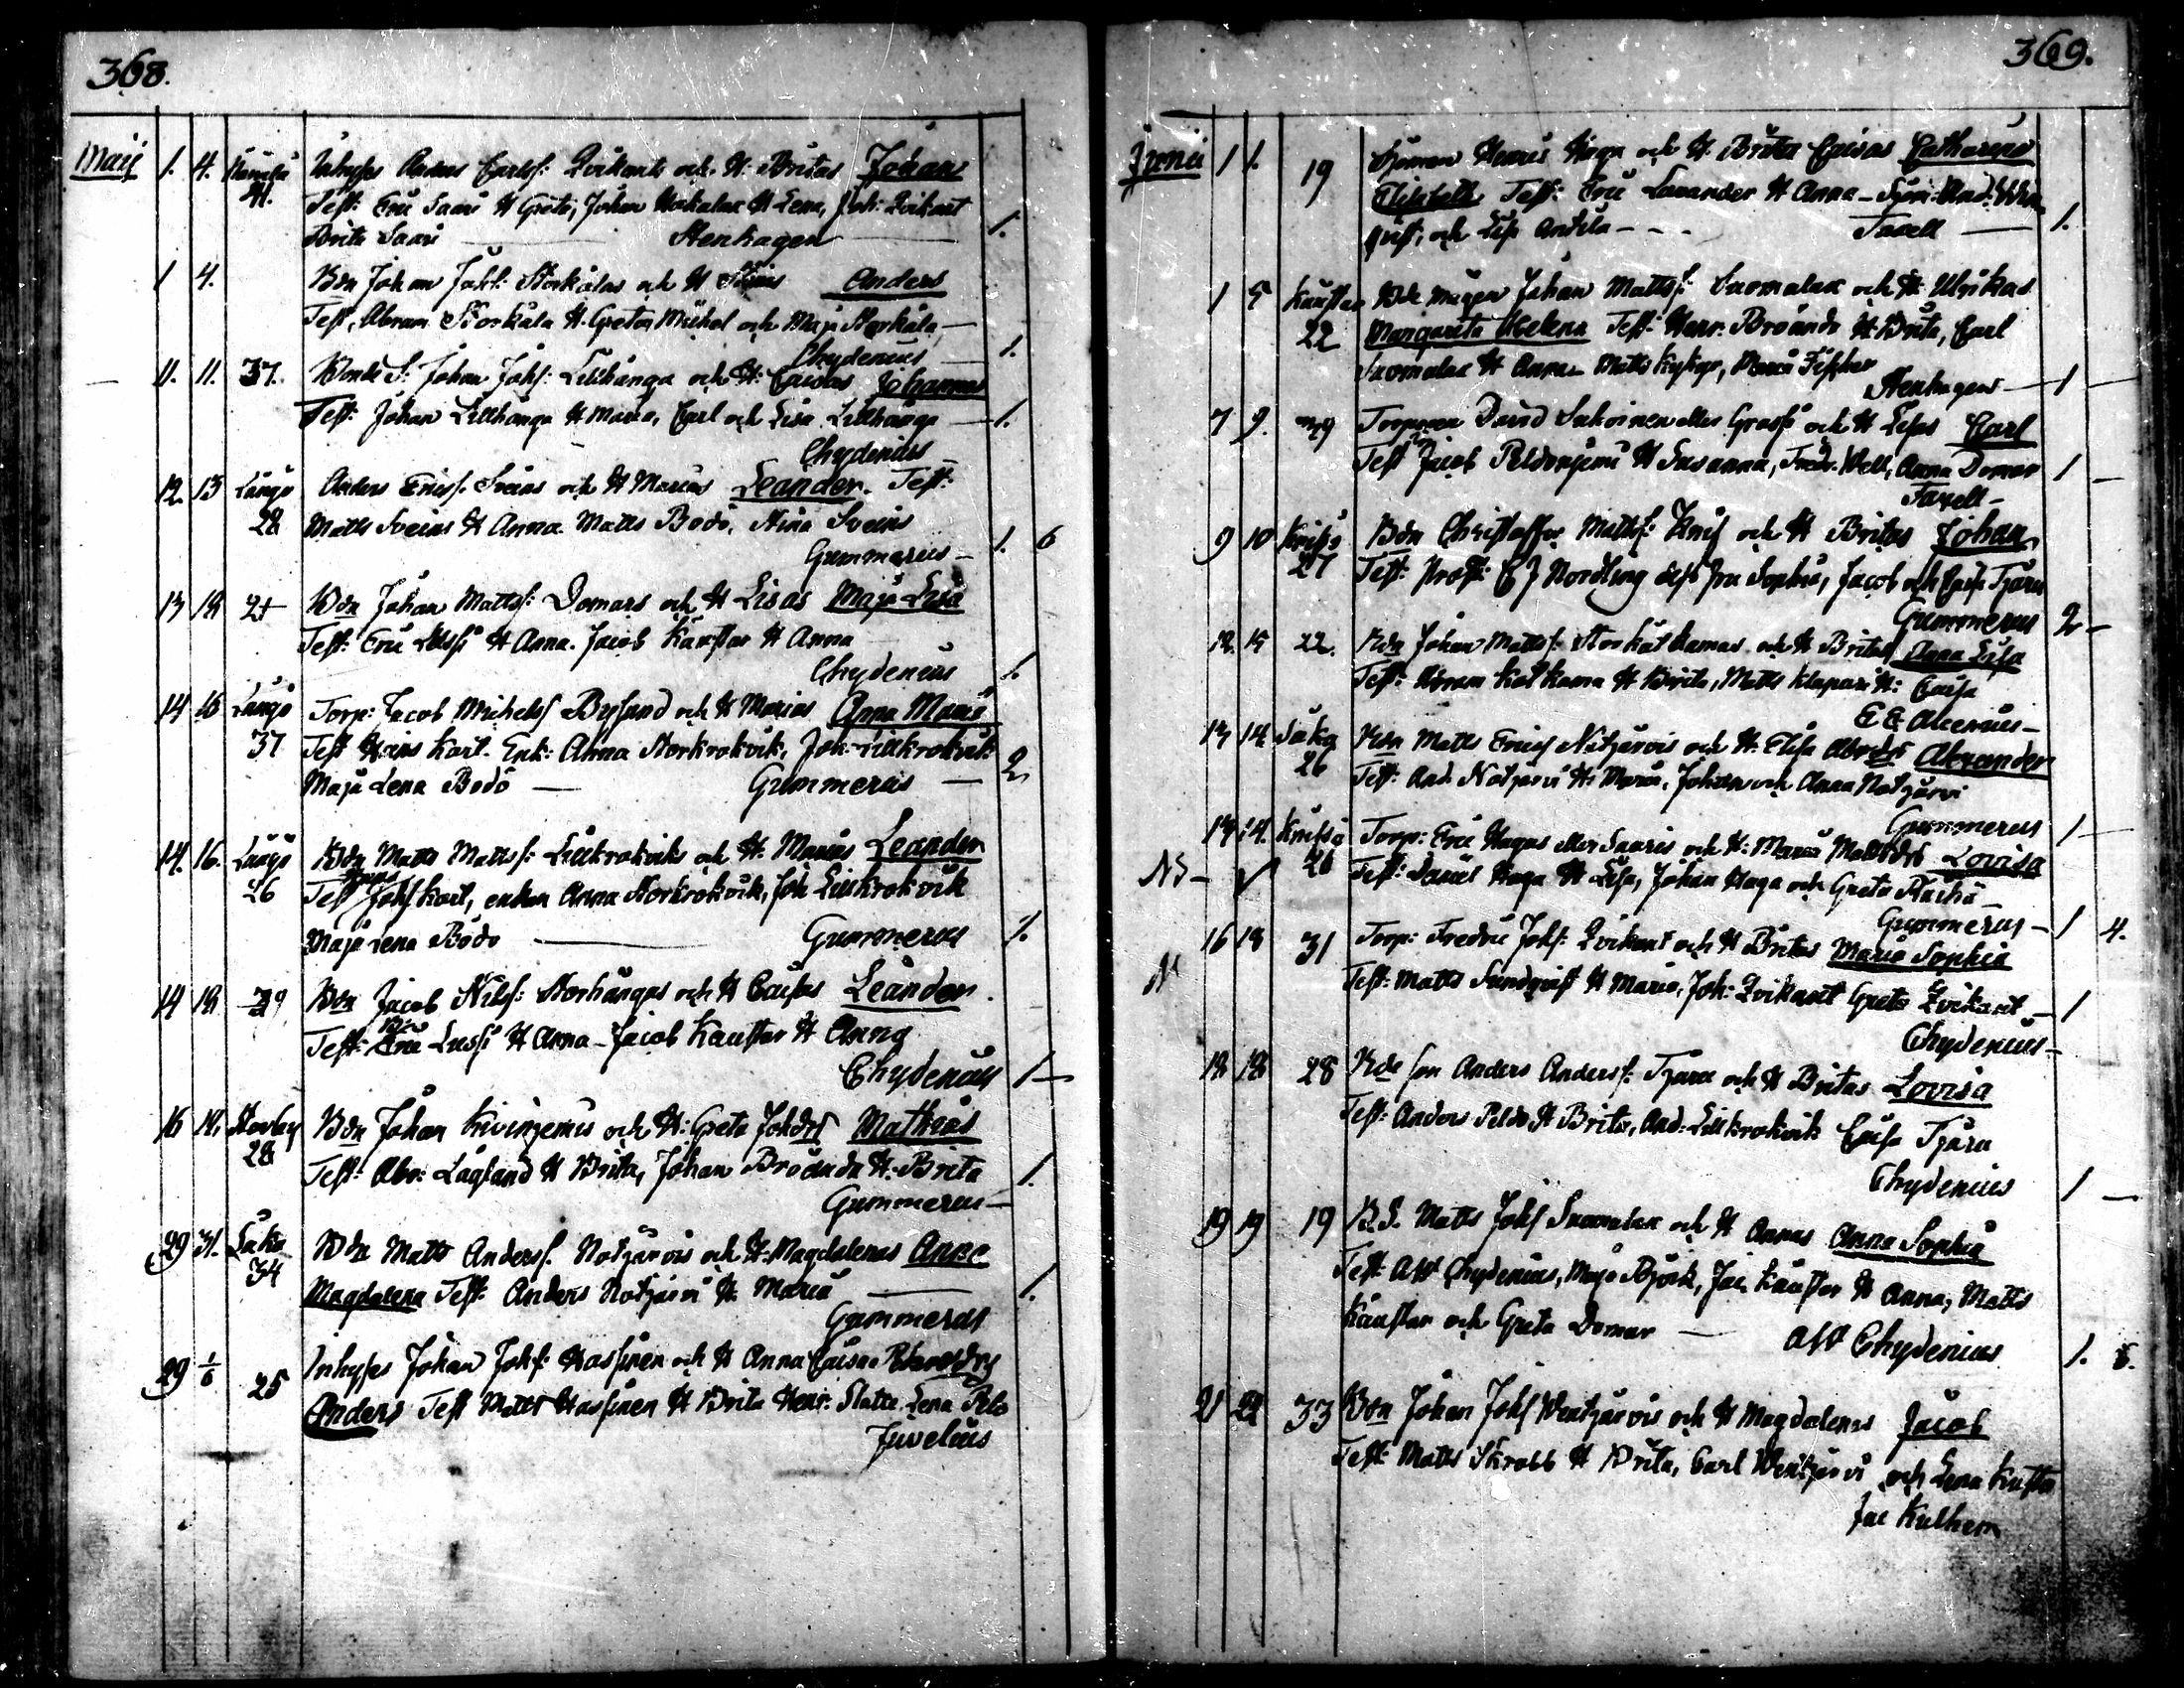 368.
Maij 1. 4. 41. Inhyses Anders Carlss: Qvikants och H: Britas Johan
Test: Eric Saari H Greta, Johan H Lena, Joh: Qvikant
Brita Saari Stenhagen 1.
1 4. Bdn Johan Johss: Storkålas och H Anders
Test: Abram Storkåla H. Greta, Michel och Maja Storkåla
Chydenius 1.
11. 11. 37. Bonde S: Johan Johss: Lillhånga och H: Caisas Johannes
Test: Johan Lillhånga H Maria, Carl och Lisa Lillhånga 1.
Chydenius
12 13 Långö Anders Ericss: Sveins och H Marias Leander. Test:
28 Matts Sveins H Anna. Matts Bodö, Stina Sveins
Gummerus 1. 6
13 18 21 Bdn Johan Mattss: Domars och H Lisas Maja Lisa
Test: Eric H Anna. Jacob Kaustar H Anna
Chydenius 1.
14 16 Långö Torp: Jacob Michelss Bysund och H Marias Anna Maria
37 Test Hans Kort. Enk: Anna Storkrokvik, Joh: Lillkrokvik
Maja Lena Bodö Gummerus 2
14. 16. Långö Bdn Matts Mattss: Lillkrokviks och H. Marias Leander
26 Test Johss Kort, enkan Anna Storkrokvik, Joh Lillkrokvik
Maja Lena Bodö Gummerus 1.
14 18 39 Bdn Jacob Nilss: Storhångas och H Caisas Leander
Test: Eric H Anna Jacob Kaustar H Anna
Chydenius 1
16 18. Storby Bdn Johan Kivinjemis och H: Greta Johdr Mathias
28 Test: Abr: Lågland H Brita, Johan Broända H: Brita 1.
Gummerus
29 31. Såka Bdn Matts Anderss. Notjärvis och H. Magdalenas Anna
34 Magdalena Test: Anders Notjärvi H. Maria 1.
Gummerus
29 1/6 25 Inhyses Johan Johss: Hassinen och H Anna Caisas
Anders Test Matts Hassinen H Brita Henr: Slotte Lena Pelo
Juvelius
369.
Junii 1 1. 19 Henric Haga och H. Brita Caisas Catharina
Elisabeth Test: Eric Lavander H Anna
och Lisa Anttila Taxell 1.
1 5 Kaustar Bde mågen Johan Mattss: Suomalax och H: Ulrikas
22 Margareta Helena Test: Henr. Broända H. Brita, Carl
Suomalax H Anna Matts Kykyr, Maria
Stenhagen 1
7 9. 29 Torparen David Sakoinen eller Grass och H Lisas Carl
Test Jacob Peldonjemi H Susanna, Fredr. Well, Anna Domar 1
Taxell
9 10 Kriks Bdn Christoffer Mattss: Knif och H Britas Johan
27 Test: Prost: E J Nordling dess fru Sophia, Jacob och Caisa Tjäru
Gummerus 2
12. 15 22. Bdn Johan Mattss: Storkatkamas och H Britas Anna Lisa
Test: Abram Katkama H Brita, Matts Klapuri H: Caisa
E E Alcenius
13 14 Såka Bdn Matts Ericss Notjärvis och H. Elisa Abrdr Alexander
26 Test: And: Notjärvi H: Maria, Johan och Anna Notjärvi
Gummerus 1
14 14. Kriksö Torp: Eric Hagas eller Saaris och H: Maria Mattsdr Lovisa
NB 26 Test: Daniel Haga H Lisa, Johan Haga och Greta
Gummerus 1 4.
16 18 31 Torp: Fredric Johss: Qvikant och H Britas Maria Sophia
Test: Matts Sundqvist H Maria, Joh: Qvikant Greta Qvikant 1
Chydenius
18 18 28 Bde son Anders Anderss: Tjäru och H Britas Lovisa
Test: Anders Peldo H Brita, And: Lillkrokvik Caisa Tjäru
Chydenius 1
19 19 19 B. S. Matts Johss Suomalax och H Annas Anna Sophia
Test: AW Chydenius, Maja Björk, Jac Kaustar H Anna, Matts
Kaustar och Greta Domar AW Chydenius 1. 5.
21 22 33 Bdn Johan Johss Wentjärvis och H Magdalenas Jacob
Test: Matts Skrabb H Brita, Carl Wentjärvi och Lena Kusta
Jac Kulhem